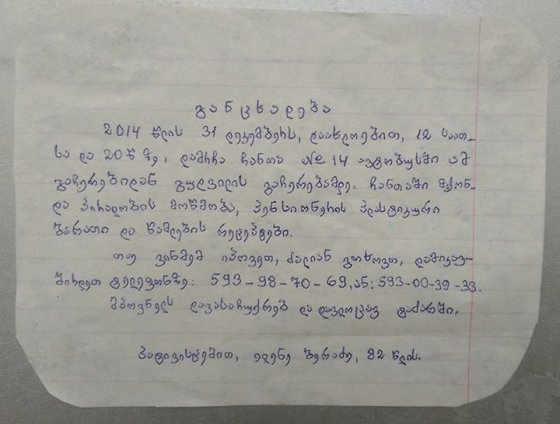 განცხადება
2014 წლის 31 დეკემბერს, დაახლოებით, 12 საათ-
სა და 20 წ ზე, დამრჩა ჩანთა №14 ავტობუსში ამ
გაჩერებიდან გულვილის გაჩერებამდე. ჩანთაში მქონ-
და პირადობის მოწმობა, პენსიონერის პლასტიკური
ბარათი და წამლების რეცეპტები.
თუ ვინმემ იპოვეთ, ძალიან გთხოვთ, დამიკავ-
შირდეთ ტელეფონზე: 593-98-70-69, ან: 593-00-39-33.
მპოვნელს დავასაჩუქრებ და დავლოცავ ტაძარში.
პატივისცემით, ელენე ბერაძე, 82 წლის.